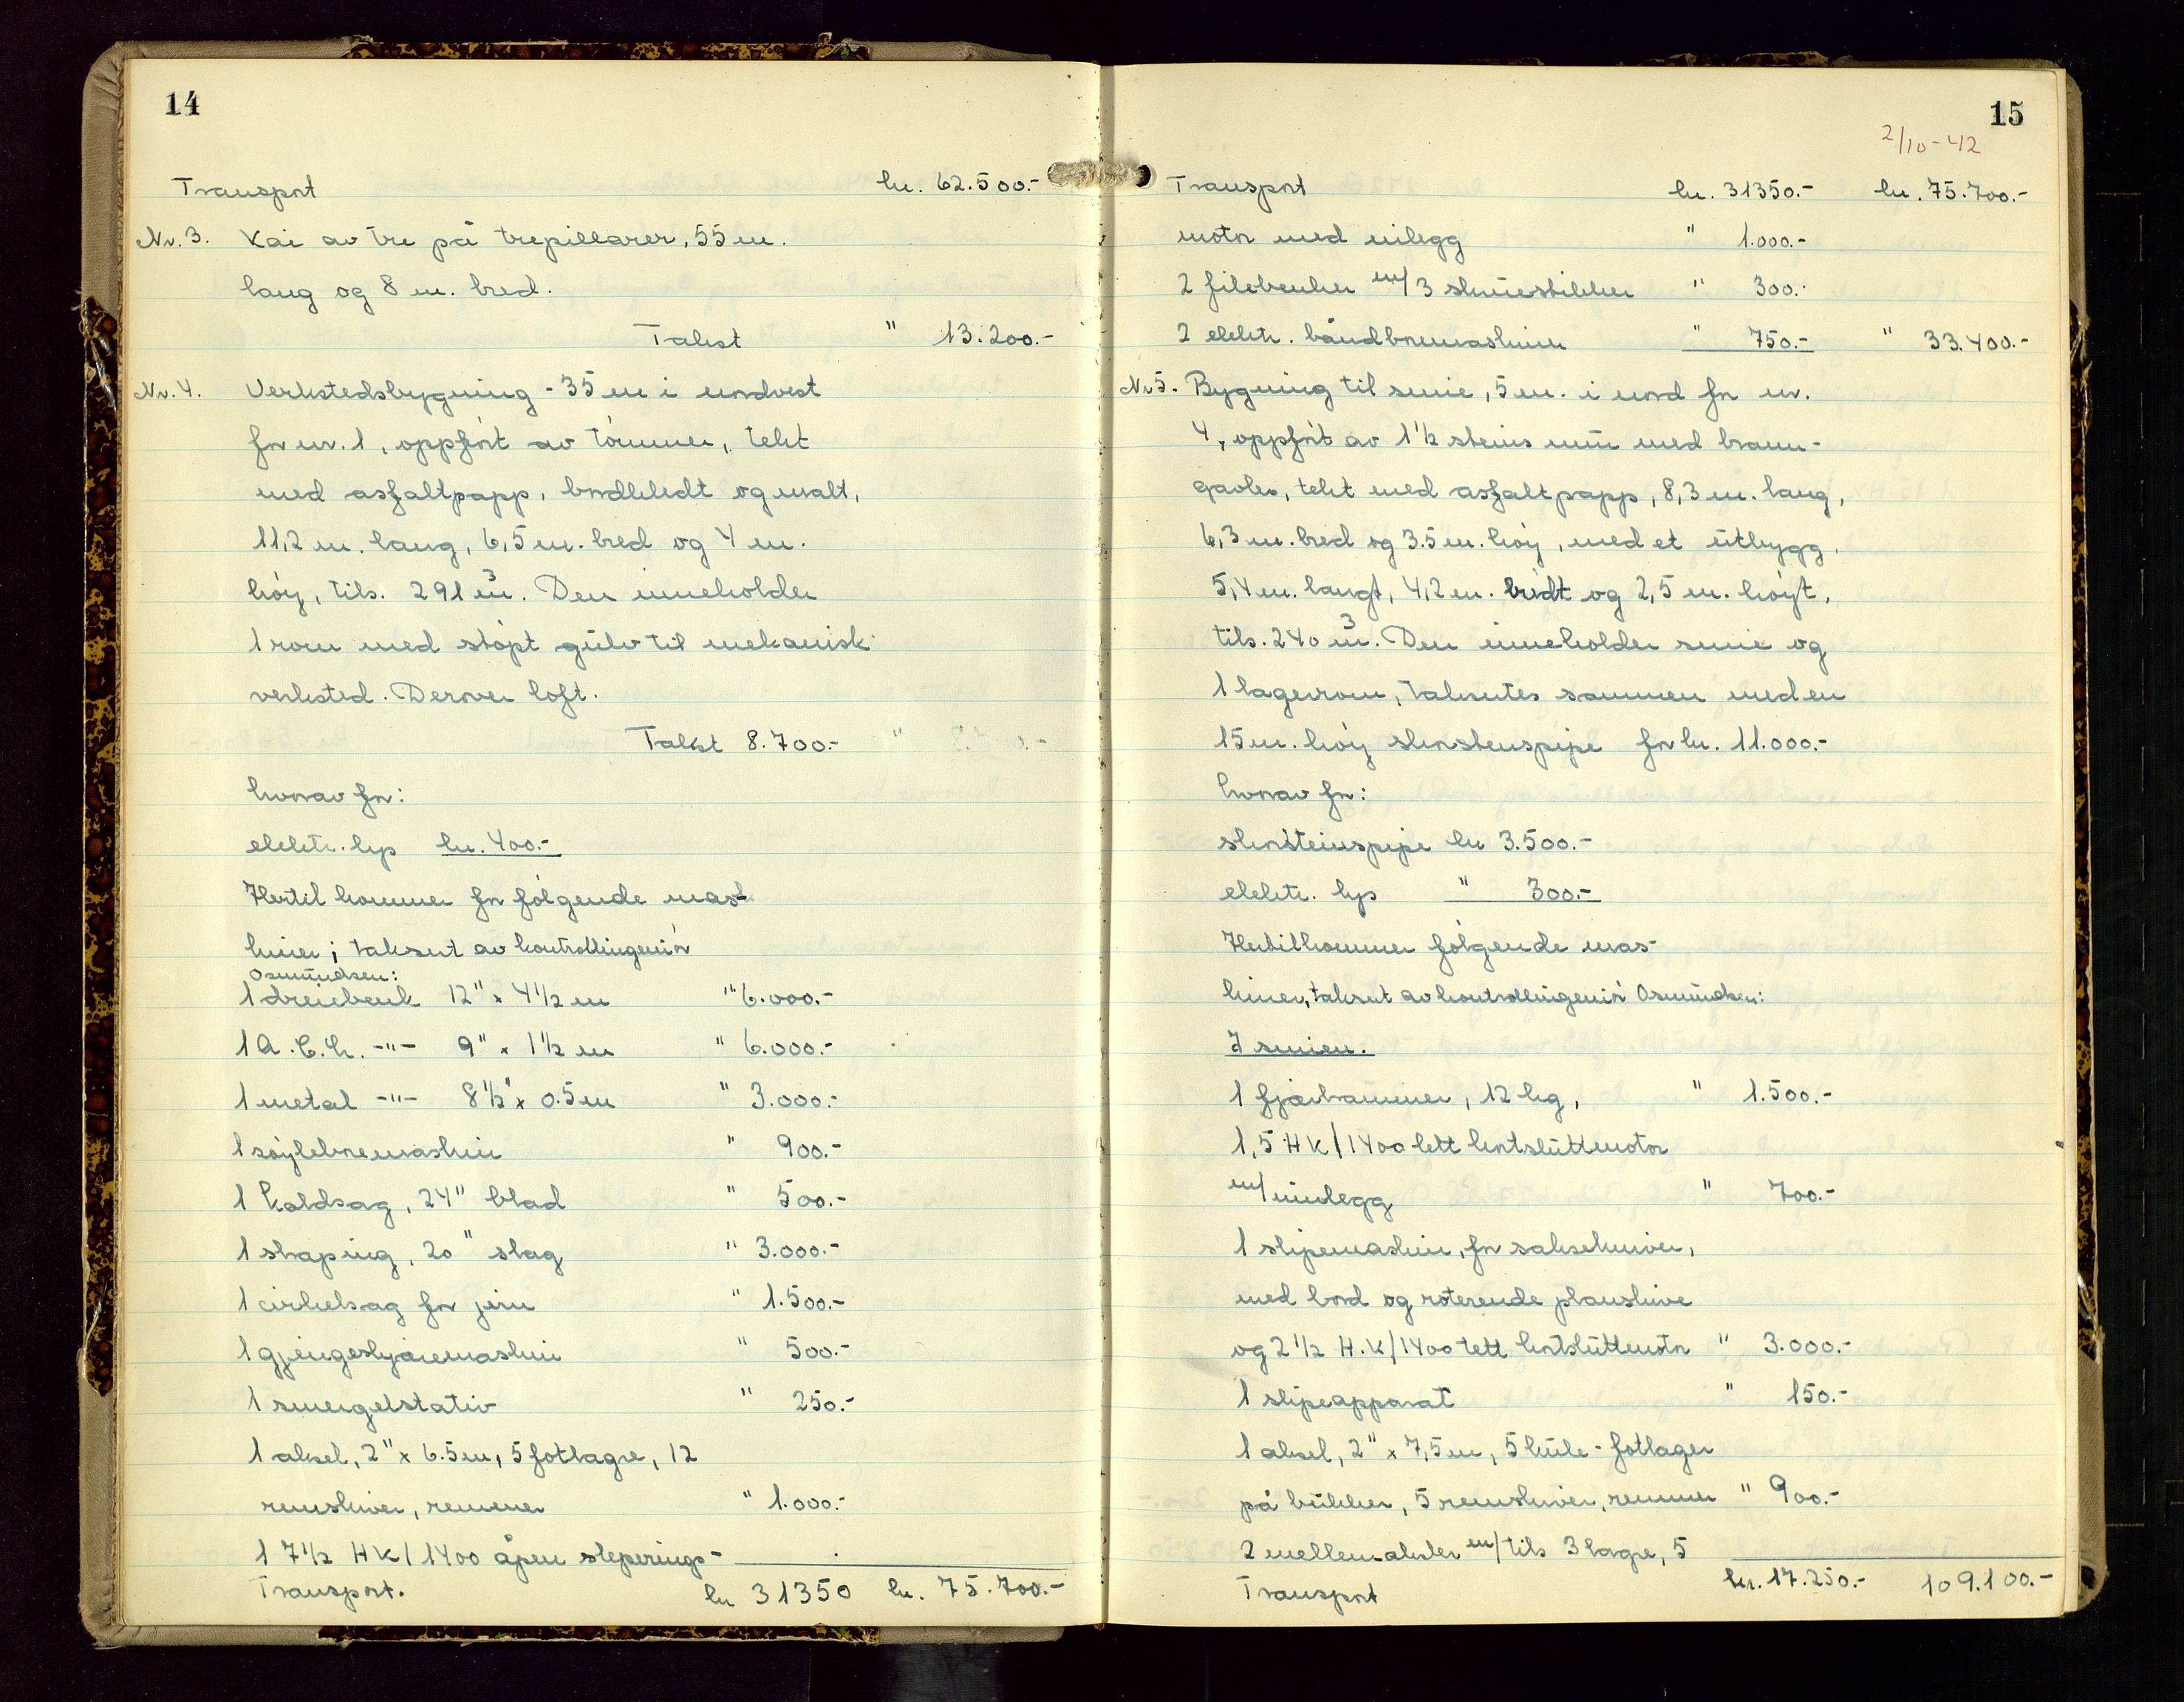 14
Transport kr. 62.500.-
Nr. 3. Kai av tre på trepillarer, 55 m.
lang og 8 m. bred.
Takst " 13.200.-
Nr. 4. Verkstedsbygning - 35 m i nordvest
for nr. 1, oppført av tömmer, tekt
med asfaltpapp, bordkledt og malt,
11,2 m. lang, 6,5 m. bred og 4 m.
höy, tils. 291 m³. Den inneholder
1 rom med støpt gulv til mekanisk
verksted. Derover loft.
Takst 8.700.- "
hvorav for:
elektr. lys kr. 400.-
Hertil kommer for fölgende mas-
kiner; taksert av kontrollingeniör
Osmundsen:
1 dreiebenk 12" x 4 1/2 m " 6.000.-
1 A.E.G. -"- 9" x 1 1/2 m " 6.000.-
1 metal -"- 8 1/2" x 0.5 m " 3.000.-
1 söyleboremaskin " 900.-
1 Koldsag, 24" blad " 500.-
1 shaping, 20" slag " 3.000.-
1 cirkelsag for jern " 1.500.-
1 gjengeskjæremaskin " 500.-
1 smergelstativ " 250.-
1 aksel, 2" x 6.5 m, 5 fotlagre, 12
remskiver, remmer " 1.000.-
1 7 1/2 HK/1400 åpen sleperings-
Transport. kr 31350 kr. 75.700.-
15
2/10-42
Transport kr. 31350.- kr. 75.700.-
motor med inlegg " 1.000.-
2 filebenker m/3 skruestikker " 300.-
2 elektr. håndboremaskiner " 750.- " 33.400.-
Nr 5. Bygning til smie, 5 m. i nord for nr.
4, oppfört av 1 1/2 steins mur med brann-
gavler, tekt med asfaltpapp, 8,3 m. lang,
6,3 m. bred og 3.5 m. höy, med et utbygg,
5,4 m. langt, 4,2 m. bredt og 2,5 m. höyt,
tils. 240 m³. Den inneholder smie og
1 lagerrom, takseres sammen med en
15 m. höy skorstenspipe for kr. 11.000.-
hvorav for:
skorsteinspipe kr 3.500.-
elektr. lys " 300.-
Hertil kommer fölgende mas-
kiner, taksert av kontrollingeniör Osmundsen:
I smien.
1 fjærhammer, 12 kg, " 1.500.-
1,5 HK/1400 tett kortsluttmotor
m/innlegg " 700.-
1 slipemaskin, for saksekniver,
med bord og roterende planskive
og 2 1/2 H.K/1400 tett kortsluttmotor " 3.000.-
1 slipeapparat " 150.-
1 aksel, 2" x 7,5 m, 5 kule-fotlager
på bukker, 5 remskiver, remmer " 900.-
2 mellem-aksler m/ tils 3 lagre, 5
Transport kr. 17.250.- 109.100.-